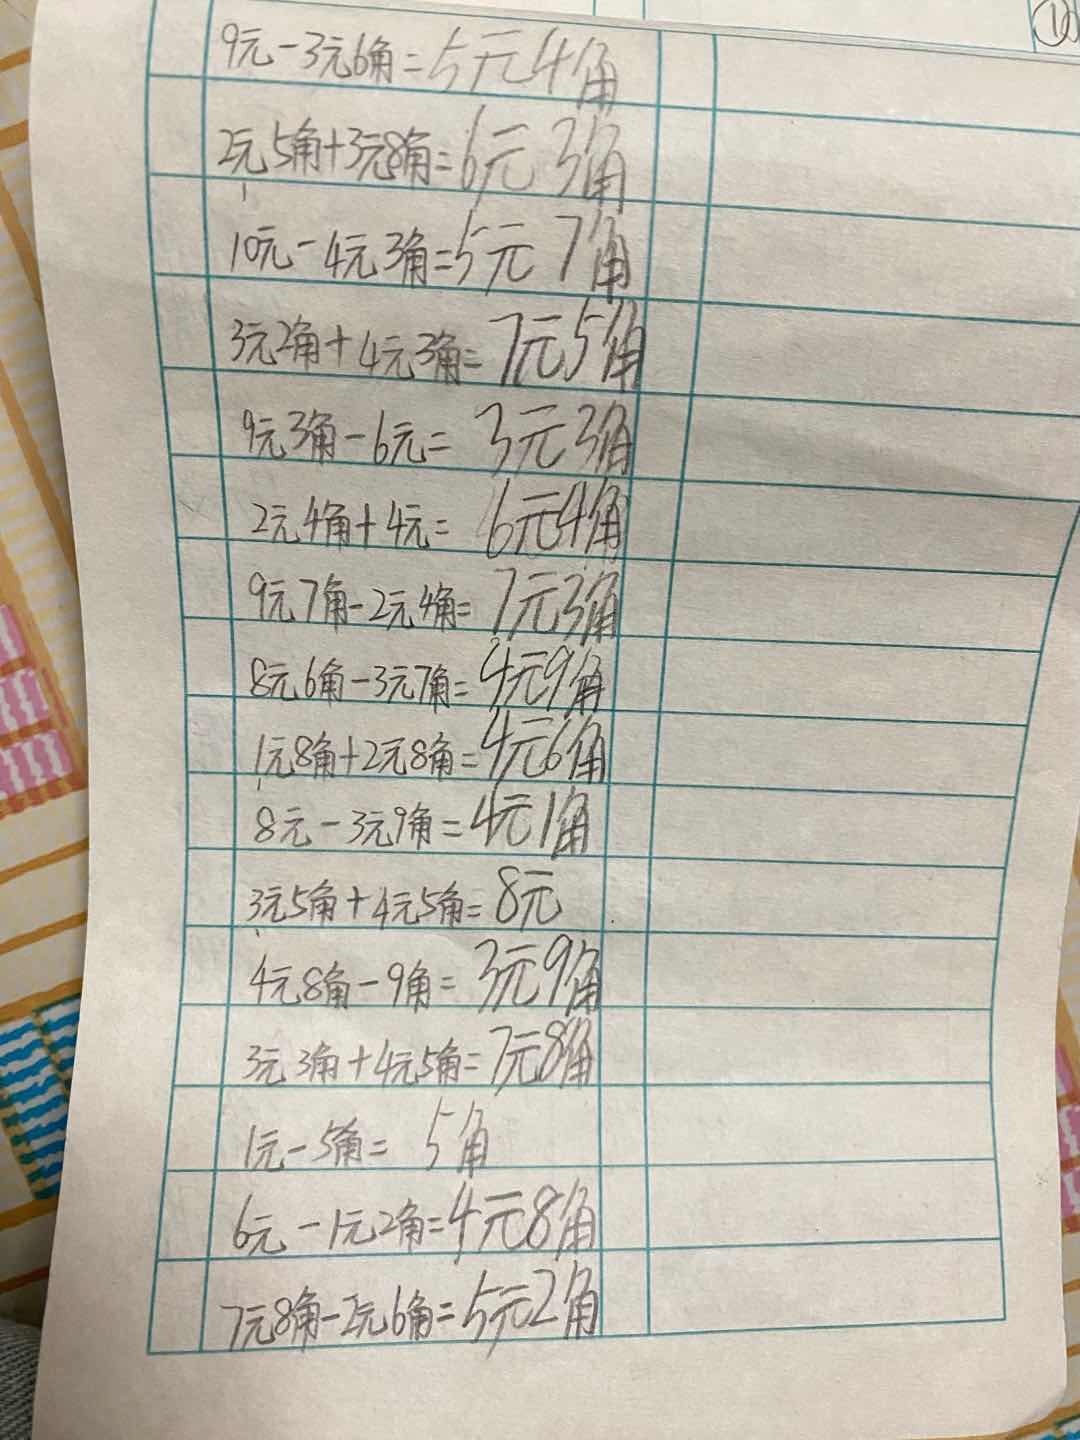 ⑩
9元-3元6角=5元4角
2元5角+3元8角=6元3角
10元-4元3角=5元7角
3元2角+4元3角=7元5角
9元3角-6元=3元3角
2元4角+4元=6元4角
9元7角-2元4角=7元3角
8元6角-3元7角=4元9角
1元8角+2元8角=4元6角
8元-3元9角=4元1角
3元5角+4元5角=8元
4元8角-9角=3元9角
3元3角+4元5角=7元8角
1元-5角=5角
6元-1元2角=4元8角
7元8角-2元6角=5元2角